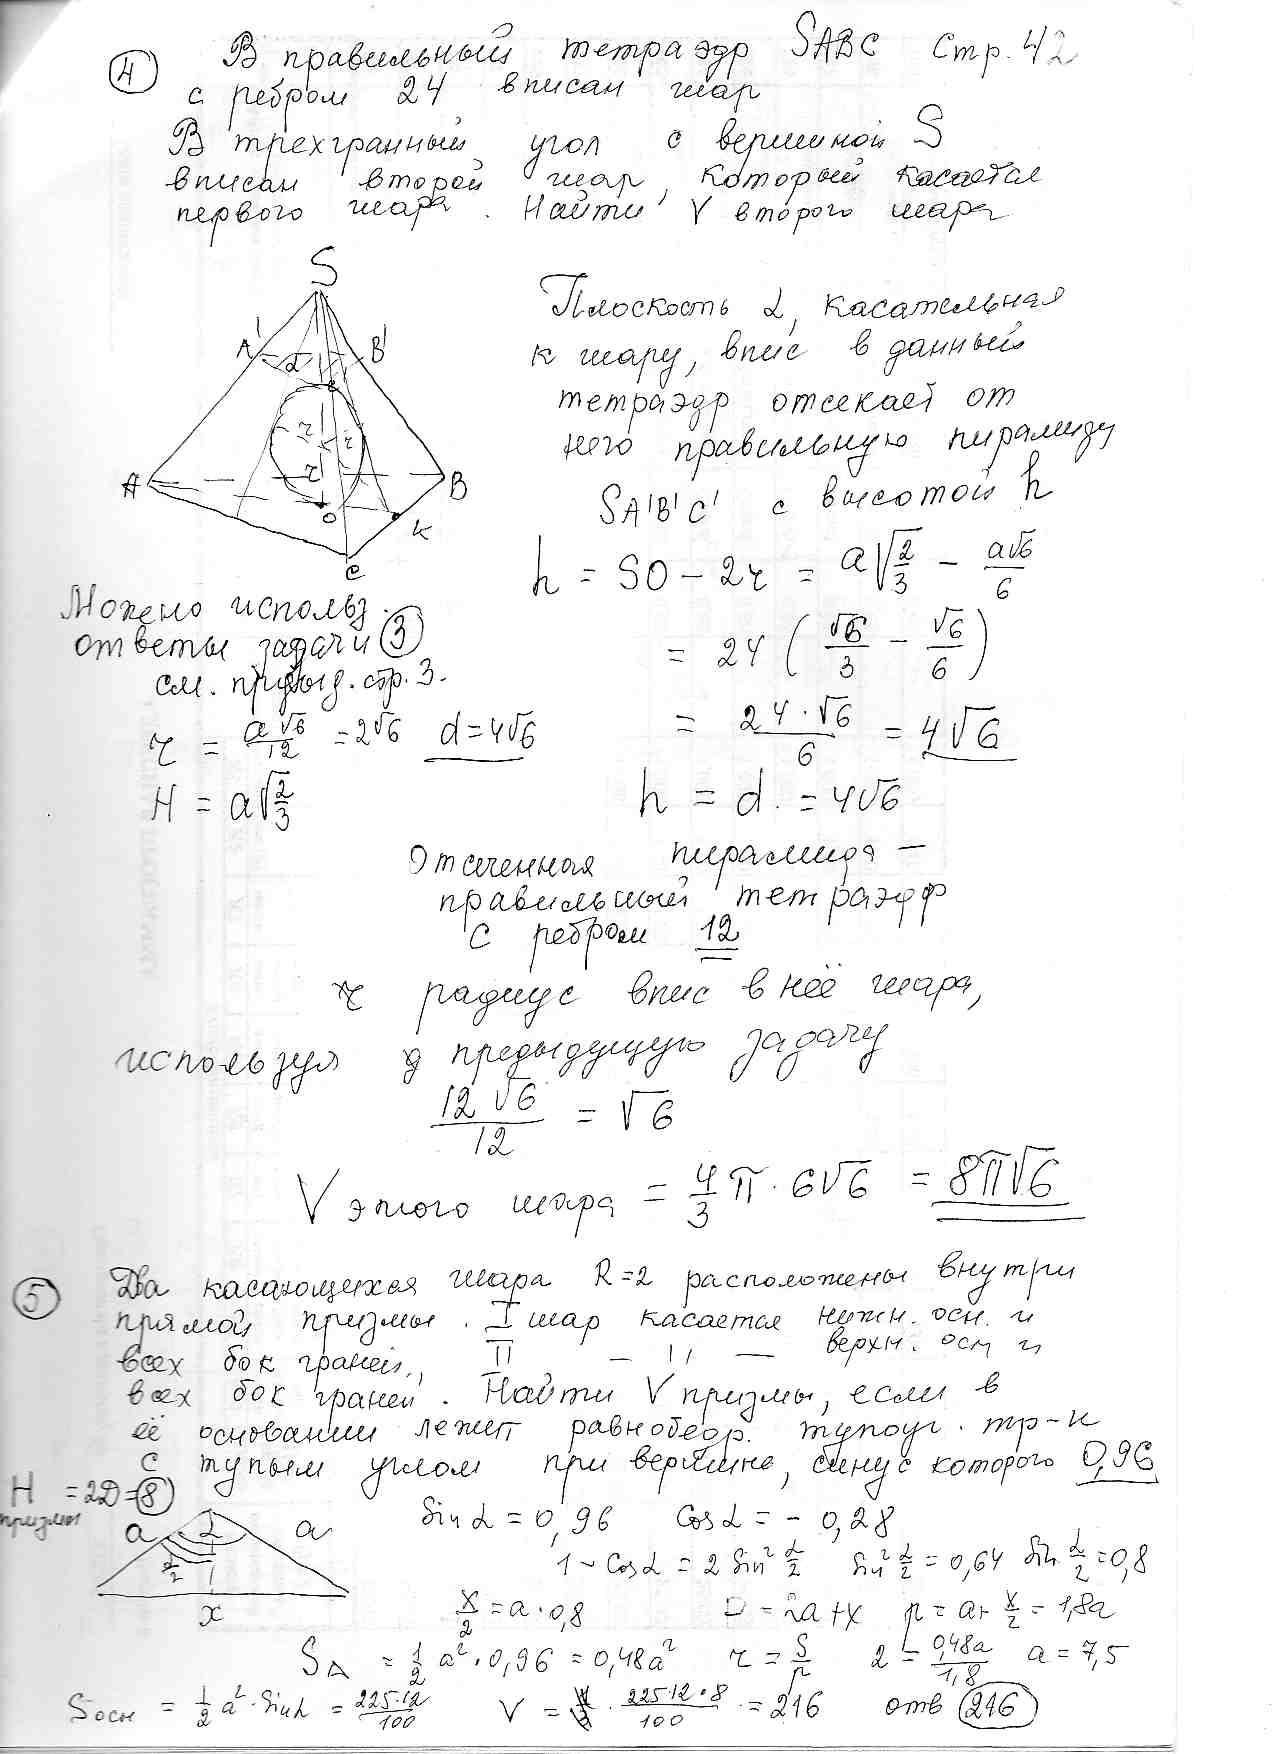 ④ В правильный тетраэдр SABC Стр. 42
с ребром 24 вписан шар
В трехгранный угол с вершиной S
вписан второй шар, который касается
первого шара. Найти V второго шара
S
A' B'
α
r r
r
A B
O K
C
Плоскость α, касательная
к шару, впис в данный
тетраэдр отсекает от
него правильную пирамиду
SA'B'C' с высотой h
h = SO − 2r = a√(2/3) − a√6/6
= 24 (√6/3 − √6/6)
= 24·√6/6 = 4√6
h = d. = 4√6
Можно использ.
ответы задачи ③
см. пр стр. 3.
r = a√6/12 = 2√6 d = 4√6
H = a√(2/3)
Отсеченная пирамида –
правильный тетраэдр
с ребром 12
r радиус впис в неё шара,
используя предыдущую задачу
12√6/12 = √6
V этого шара = 4/3 π · 6√6 = 8π√6
⑤ Два касающихся шара R=2 расположены внутри
прямой призмы. I шар касается нижн. осн. и
всех бок граней, II — " — верхн. осн и
всех бок граней. Найти V призмы, если в
её основании лежит равнобедр. тупоуг. тр-к
с тупым углом при вершине, синус которого 0,96
H призмы = 2D = 8
a α a
α/2
x
Sin α = 0,96 Cos α = − 0,28
1 − Cos α = 2 Sin² α/2 Sin² α/2 = 0,64 Sin α/2 = 0,8
x/2 = a · 0,8 P = 2a + x p = a + x/2 = 1,8a
S△ = 1/2 a² · 0,96 = 0,48a² r = S/p 2 = 0,48a/1,8 a = 7,5
Sосн = 1/2 a² · Sin α = 225·12/100 V = · 225·12·8/100 = 216 отв 216